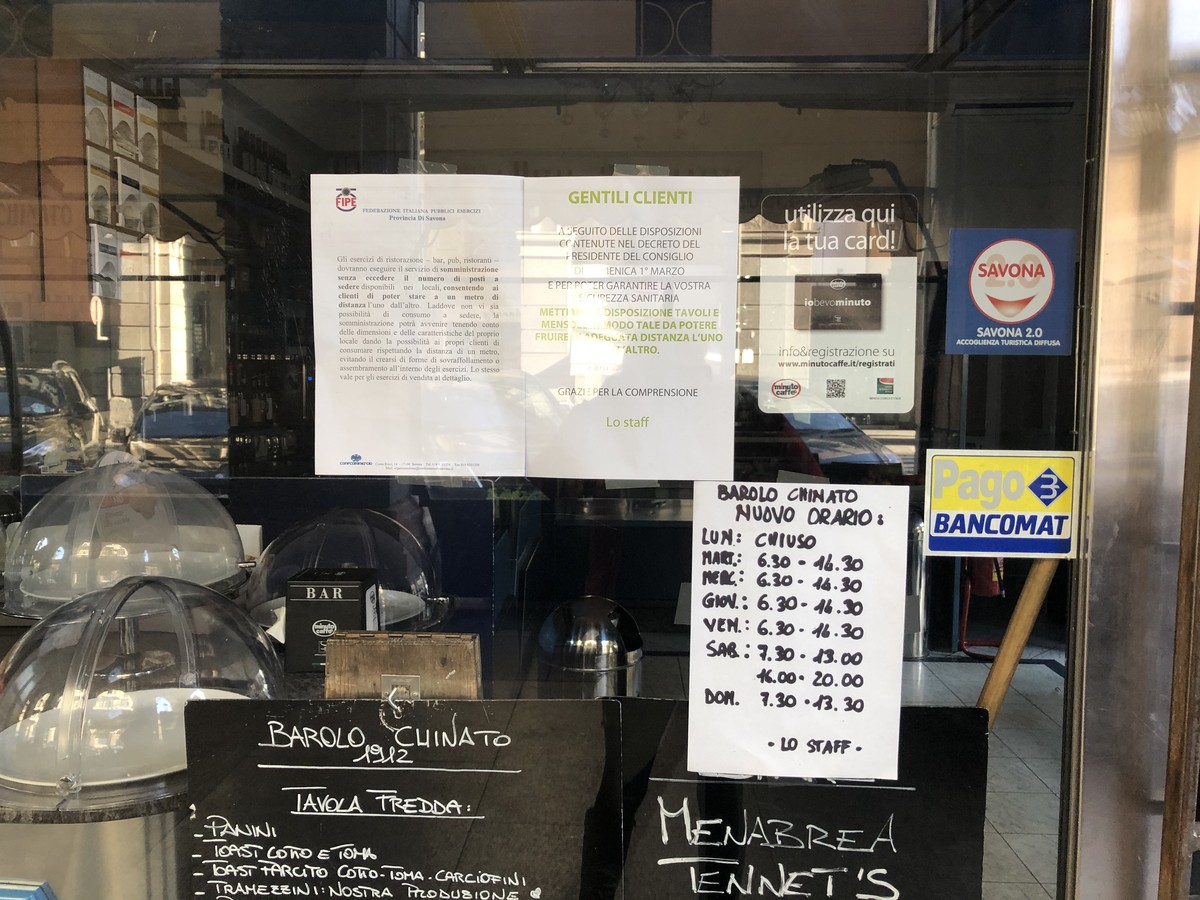 FIPE
FEDERAZIONE ITALIANA PUBBLICI ESERCIZI
Provincia Di Savona
Gli esercizi di ristorazione – bar, pub, ristoranti –
dovranno eseguire il servizio di somministrazione
senza eccedere il numero di posti a
sedere disponibili nei locali, consentendo ai
clienti di poter stare a un metro di
distanza l'uno dall'altro. Laddove non vi sia
possibilità di consumo a sedere, la
somministrazione potrà avvenire tenendo conto
delle dimensioni e delle caratteristiche del proprio
locale dando la possibilità ai propri clienti di
consumare rispettando la distanza di un metro,
evitando il crearsi di forme di sovraffollamento o
assembramento all'interno degli esercizi. Lo stesso
vale per gli esercizi di vendita al dettaglio.
GENTILI CLIENTI
A SEGUITO DELLE DISPOSIZIONI
CONTENUTE NEL DECRETO DEL
PRESIDENTE DEL CONSIGLIO
DI DOMENICA 1° MARZO
E PER POTER GARANTIRE LA VOSTRA
SICUREZZA SANITARIA
METTIAMO A DISPOSIZIONE TAVOLI E
MENSOLE IN MODO TALE DA POTERE
FRUIRE DI ADEGUATA DISTANZA L'UNO
L'ALTRO.
GRAZIE PER LA COMPRENSIONE
Lo staff
utilizza qui
la tua card!
iobevominuto
info&registrazione su
www.minutocaffe.it/registrati
minuto
caffè
SAVONA
2.0
SAVONA 2.0
ACCOGLIENZA TURISTICA DIFFUSA
Pago
BANCOMAT
BAROLO CHINATO
NUOVO ORARIO:
LUN.: CHIUSO
MART.: 6.30 - 16.30
MERC.: 6.30 - 16.30
GIOV.: 6.30 - 16.30
VEN.: 6.30 - 16.30
SAB.: 7.30 - 13.00
16.00 - 20.00
DOM. 7.30 - 13.30
- LO STAFF -
BAR
minuto
caffè
BAROLO CHINATO
1912
TAVOLA FREDDA:
- PANINI
- TOAST COTTO E TOMA
- TOAST FARCITO COTTO-TOMA-CARCIOFINI
- TRAMEZZINI: NOSTRA PRODUSIONE
MENABREA
TENNET'S